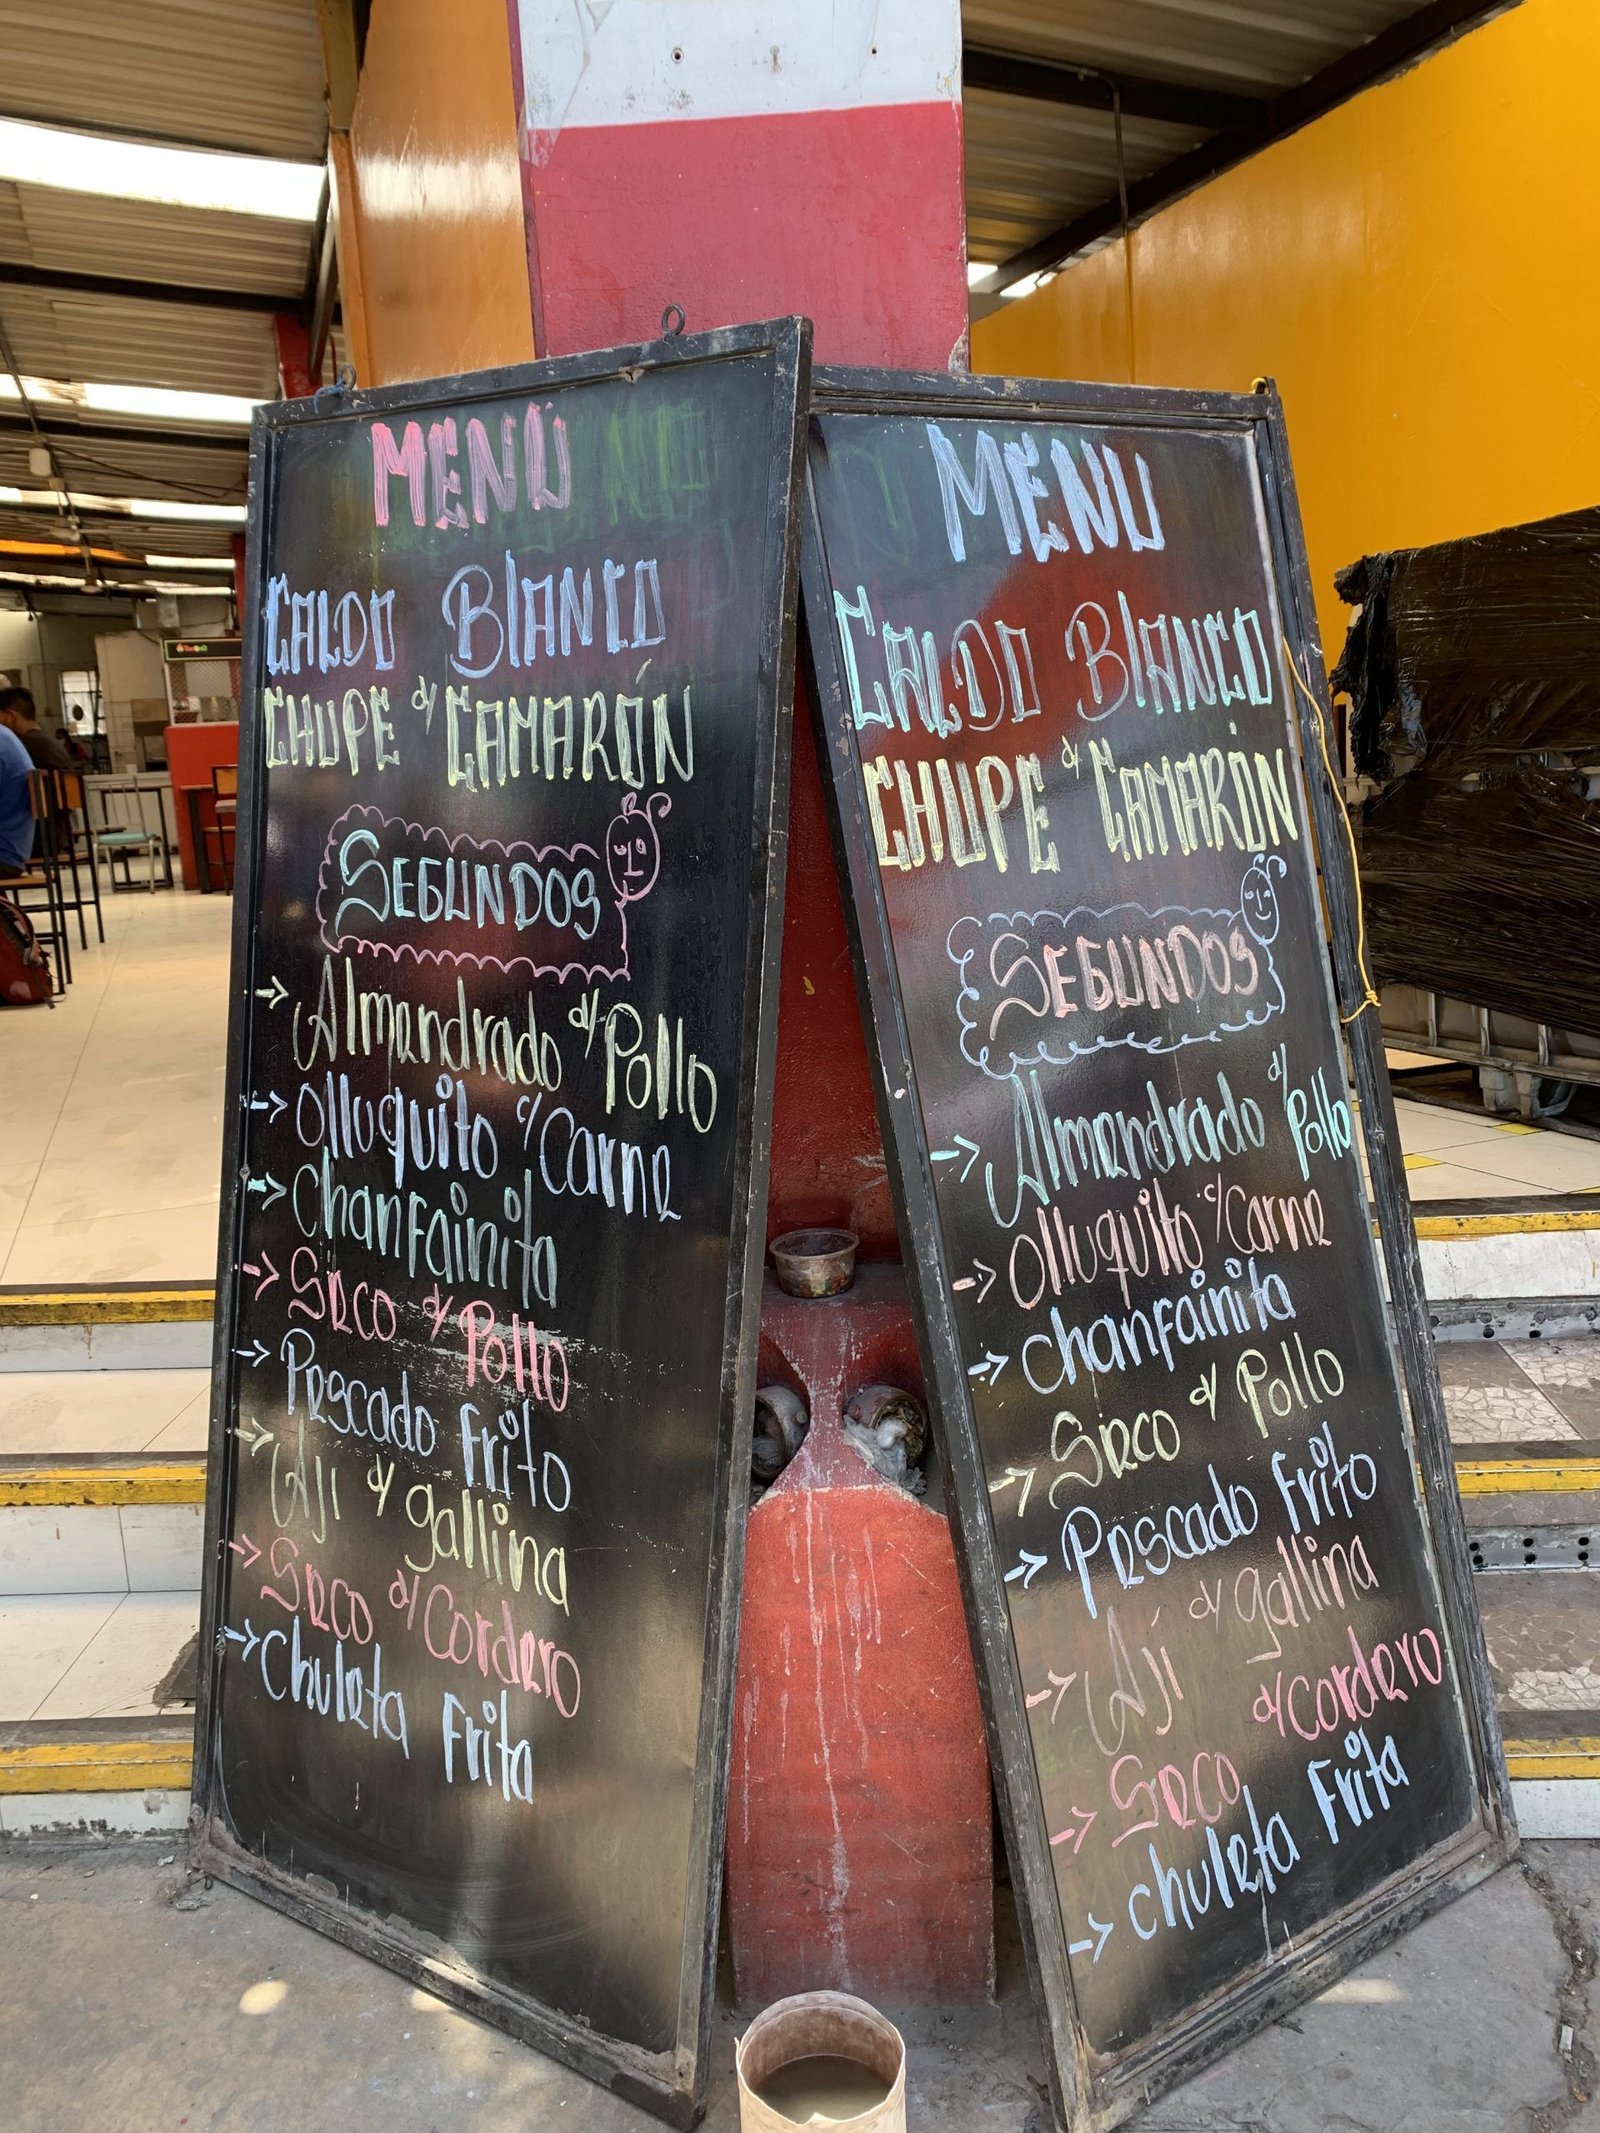 MENÚ
CALDO BLANCO
CHUPE d/ CAMARÓN
SEGUNDOS
-> Almendrado d/ Pollo
-> Olluquito c/ Carne
-> Chanfainita
-> Seco d/ Pollo
-> Pescado Frito
-> Ají d/ gallina
-> Seco d/ Cordero
-> Chuleta Frita
MENU
CALDO BLANCO
CHUPE d/ CAMARÓN
SEGUNDOS
-> Almendrado d/ Pollo
-> Olluquito c/ Carne
-> Chanfainita
-> Seco d/ Pollo
-> Pescado Frito
-> Ají d/ gallina
-> Seco d/ Cordero
-> Chuleta Frita